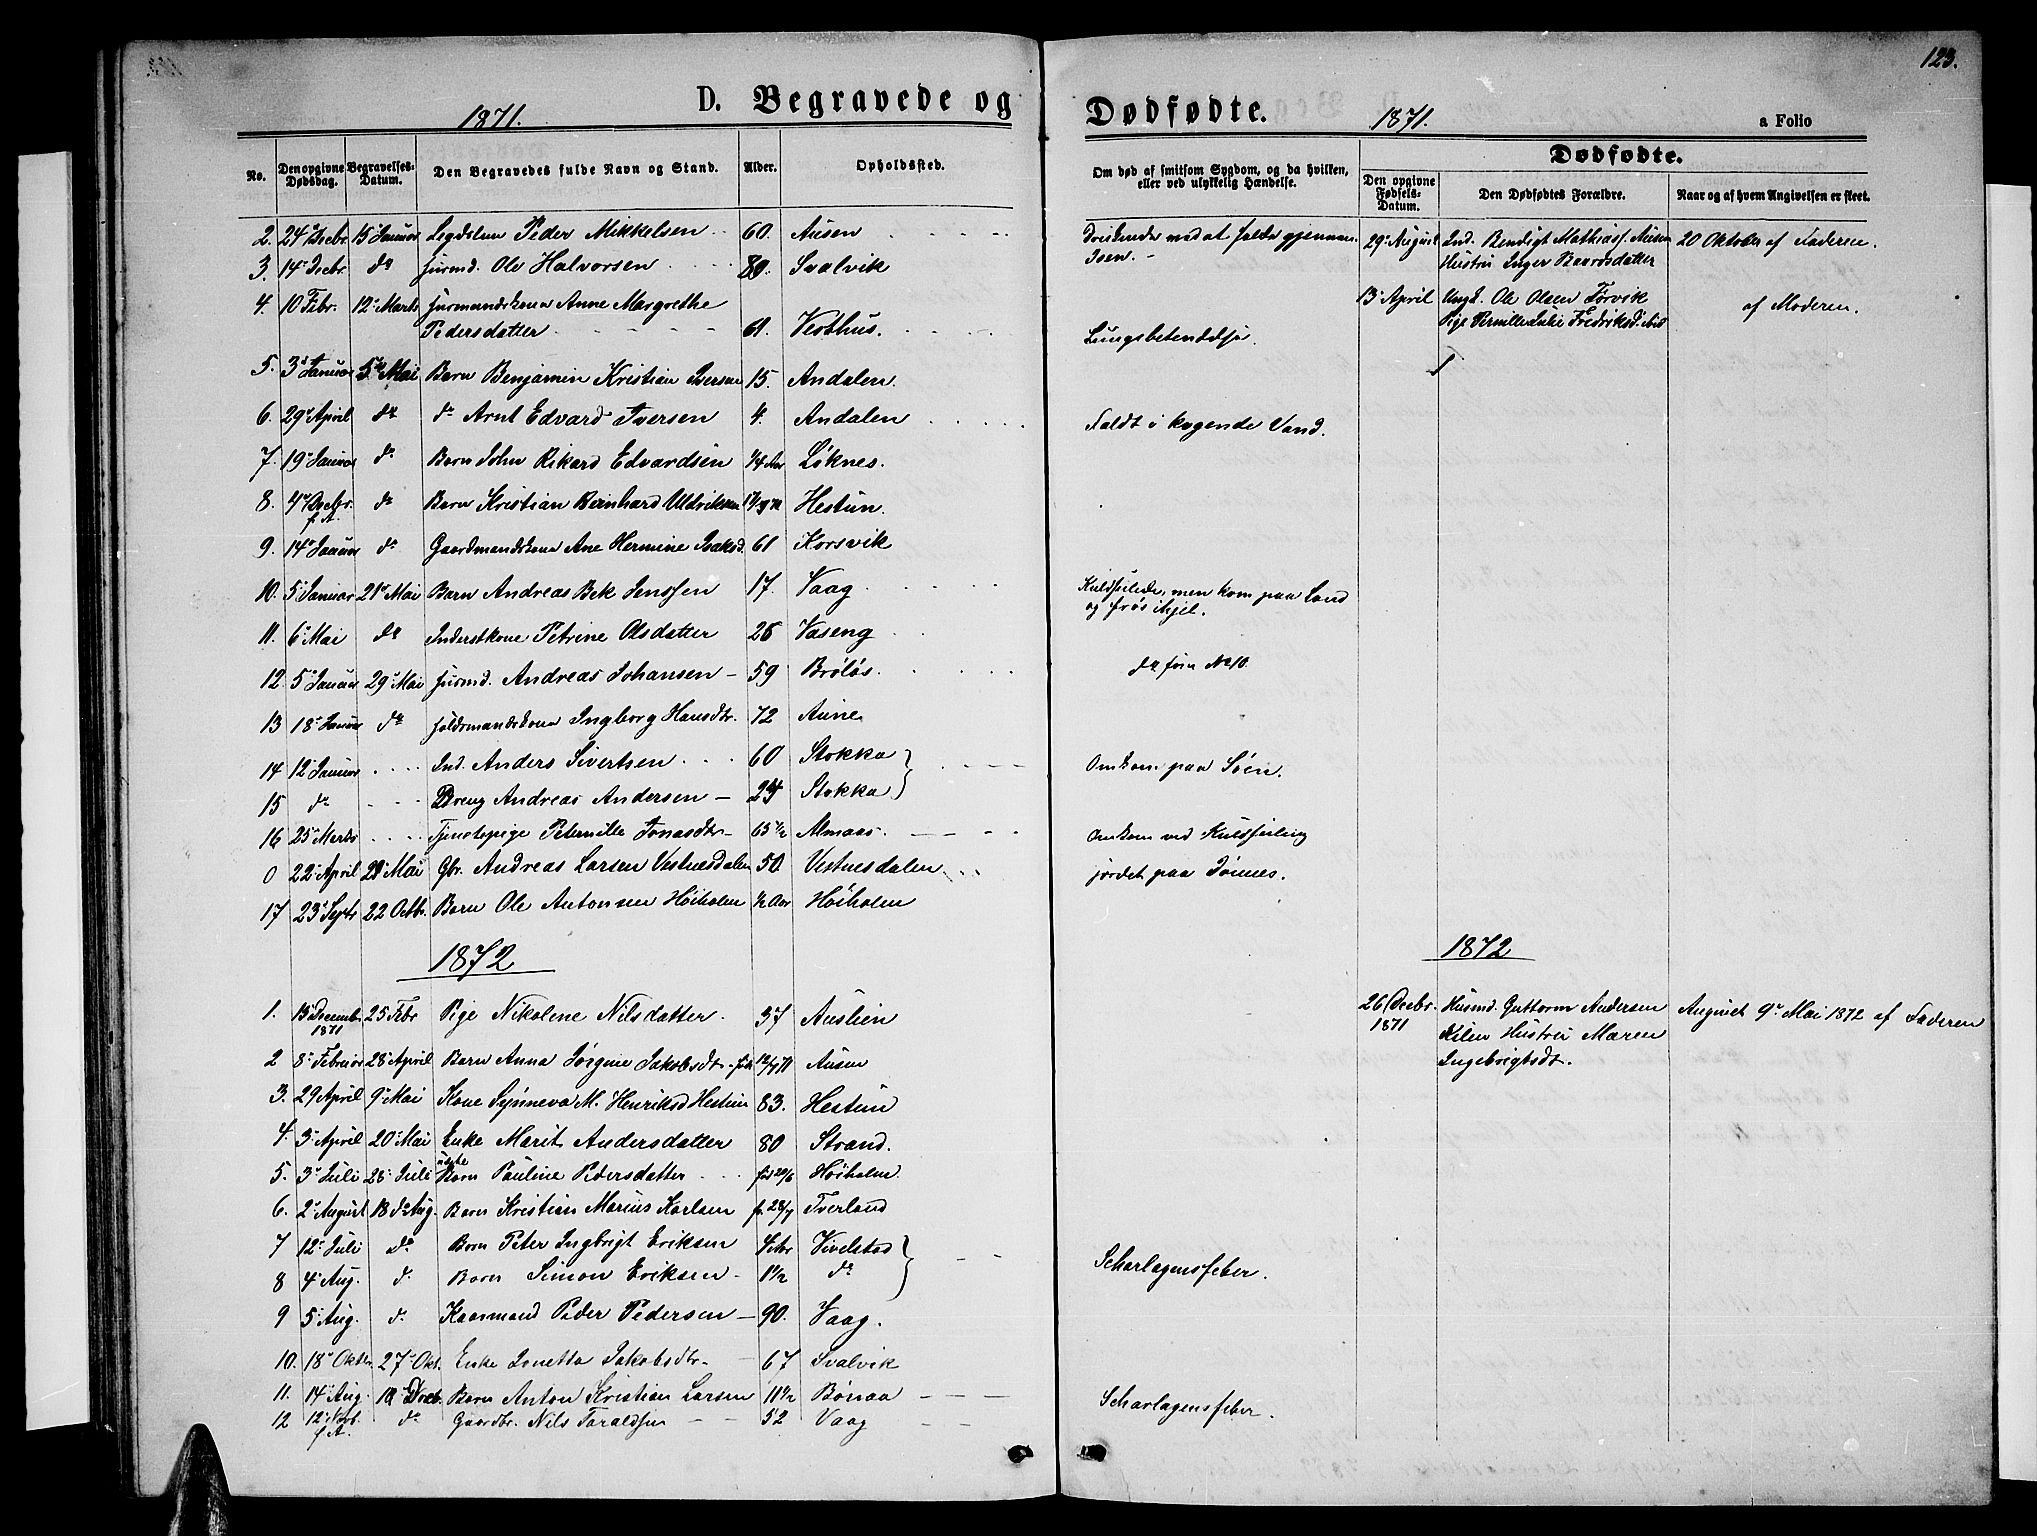 123.
D. Begravede og Dødfødte.
1871.
1871.
a Folio
No.
Den opgivne Dødsdag.
Begravelses-Datum.
Den Begravedes fulde Navn og Stand.
Alder.
Opholdssted.
Om død af smitsom Sygdom, og da hvilken, eller ved ulykkelig Hændelse.
Dødfødte.
Den opgivne Fødsels-Datum.
Den Dødfødtes Forældre.
Naar og af hvem Angivelsen er skeet.
2. 24 Decbr. 15 Januar Legdslem Peder Mikkelsen 60. Ausen
ved at falde gjennem Isen.
3. 14 Decbr. do Ole Halvorsen 89. Svalvik
4. 10 Febr. 12 Marts Anne Margrethe
Pedersdatter 61. Vesthus.
Lungebetændelse
5. 3 Januar 5 Mai Barn Benjamin Kristian Iversen 15. Andalen.
6. 29 April do do Arnt Edvard Iversen 4. Andalen
Faldt i kogende Vand.
7. 19 Januar do Barn John Rikard Edvardsen 1/4 Aar Løknes.
8. 4 Decbr. f. A. do Barn Kristian Bernhard Uldriksen Hestun.
9. 14 Januar do Gaardmandskone Ane Hermine Isaksd. 61 Korsvik
10. 5 Januar 21 Mai Barn Andreas Bek Jenssen 17. Vaag
Kuldseilede, men kom paa Land og frøs ihjel.
11. 6 Mai do Inderstkone Petrine Olsdatter 26 Vaseng
12. 5 Januar 29 Mai Andreas Johansen 59 Brøløs.
do som No 10.
13 18 Januar do Ingborg Hansdtr. 72 Aune
14 12 Januar Ind. Anders Sivertsen 60 Stokka
Omkom paa Søen.
15 do Dreng Andreas Andersen Stokka
16 25 Marts Tjenstepige Peternille Jonasdtr 65 1/2 Almaas.
Omkom ved Kuldseiling
0 22 April 28 Mai Gbr. Andreas Larsen Vestnesdalen 50 Vestnesdalen
jordet paa Tønnes.
17 23 Septr 22 Octbr. Barn Ole Antonsen Høiholm 1/2 Aar Høiholm
29 August Ind. Bendigt Mathiass. Ausen
Hustru Inger Baardsdatter
20 Oktober af Faderen.
13 April Ungk. Ole Olsen Tørvik
Pige Pernille Fredriksd.
af Moderen.
1872
1. 15 Decemb. 1871 25 Febr Pige Nikoline Nilsdatter 37 Auslien
2 8 Februar 28 April Barn Anna Jørgine Jakobsdt. Ausen
3. 29 April 9 Mai Kone Synneva M. Henriksd Hestun 83. Hestun
4. 3 April 20 Mai Enke Marit Andersdatter 80 Strand.
5. 3 Juli 28 Juli uægte Barn Pauline Pedersdatter Høiholm.
6. 2 August 18 Aug. Barn Kristian Marius Karlsen f. 28/7 Tverland
7 12 Juli do Barn Peter Ingbrigt Eriksen Vivelstad
8 4 Aug. do Barn Simon Eriksen 1 1/2 do
Scharlagensfeber.
9 5 Aug. do Kaarmand Peder Pedersen 90. Vaag.
10. 18 Oktbr. 27 Okt. Enke Jonetta Jakobsdtr. 67 Svalvik
11. 14 Aug. Barn Anton Kristian Larsen 11 1/2 Bønaa
Scharlagensfeber.
12 12 f. A. do Gaardbr. Nils Taraldsen 52 Vaag
1872
26 Decbr. 1871 Husmd. Guttorm Andersen
Kilen Hustru Maren
Ingebrigtsdt.
Angivet 9 Mai 1872 af Faderen